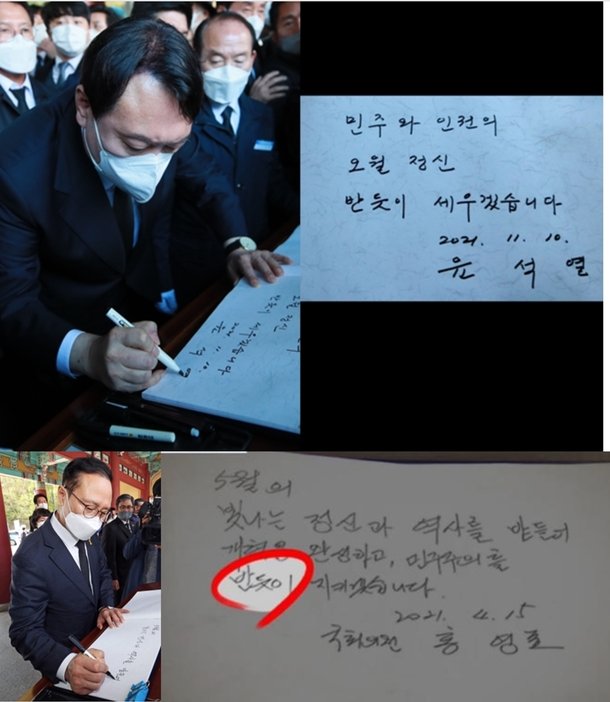 민주와 인권의
오월 정신
반듯이 세우겠습니다
2021. 11. 10.
윤 석 열
5월의
빛나는 정신과 역사를 받들어
개혁을 완성하고, 민주주의를
반듯이 지키겠습니다.
2021. 4. 15
국회의원 홍 영 표